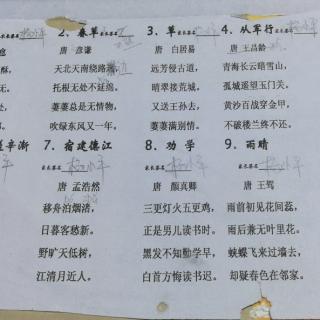 2、春草
3、草
4、从军行
唐 彦谦
唐 白居易
唐 王昌龄
天北天南绕路边
远芳侵古道，
青海长云暗雪山，
托根无处不延绵。
晴翠接荒城。
孤城遥望玉门关。
萋萋总是无情物，
又送王孙去，
黄沙百战穿金甲，
吹绿东风又一年。
萋萋满别情。
不破楼兰终不还。
辛渐
7、宿建德江
8、劝学
9、雨晴
唐 孟浩然
唐 颜真卿
唐 王驾
移舟泊烟渚，
三更灯火五更鸡，
雨前初见花间蕊，
日暮客愁新。
正是男儿读书时。
雨后兼无叶里花。
野旷天低树，
黑发不知勤学早，
蛱蝶飞来过墙去，
江清月近人。
白首方悔读书迟。
却疑春色在邻家。